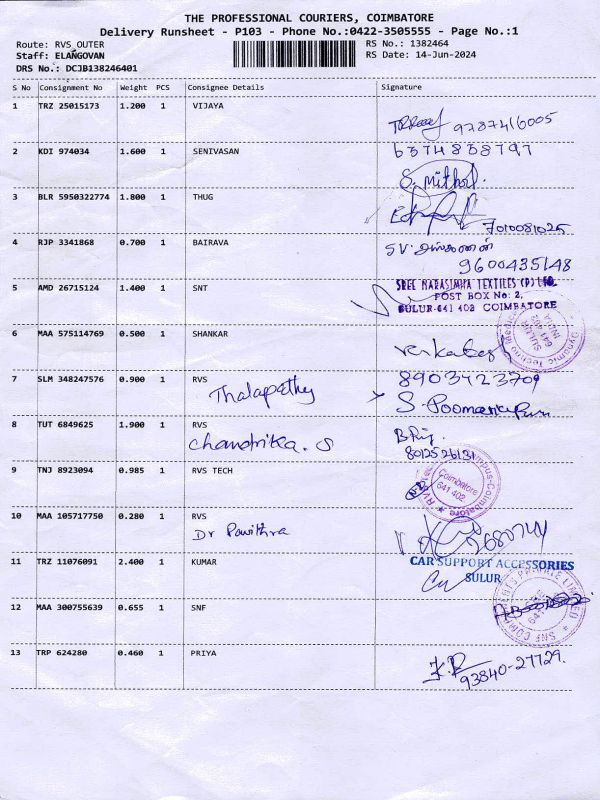 THE PROFESSIONAL COURIERS, COIMBATORE
Delivery Runsheet - P103 - Phone No.:0422-3505555 - Page No.:1
Route: RVS_OUTER RS No.: 1382464
Staff: ELANGOVAN RS Date: 14-Jun-2024
DRS No.: DCJB138246401
S No Consignment No Weight PCS Consignee Details Signature
1 TRZ 25015173 1.200 1 VIJAYA
9787416005
2 KDI 974034 1.600 1 SENIVASAN 6374838797
S. Mithol.
3 BLR 5950322774 1.800 1 THUG
7010081025
4 RJP 3341868 0.700 1 BAIRAVA SV.
9600435148
5 AMD 26715124 1.400 1 SNT SREE NARASIMHA TEXTILES (P) LTD.
POST BOX No: 2,
SULUR-641 402 COIMBATORE
Dynamic Techno Medica
SULUR
641 402
INDIA
6 MAA 575114769 0.500 1 SHANKAR
Venkates
7 SLM 348247576 0.900 1 RVS 8903423709
Thalapathy S.
8 TUT 6849625 1.900 1 RVS
Chandrika. S
8012526131
9 TNJ 8923094 0.985 1 RVS TECH
Campus-Coimbatore
Coimbatore
641 402
10 MAA 105717750 0.280 1 RVS
Dr Pawithra
11 TRZ 11076091 2.400 1 KUMAR CAR SUPPORT ACCESSORIES
SULUR
12 MAA 300755639 0.655 1 SNF
SNF COMPONENTS PRIVATE LIMITED
13 TRP 624280 0.460 1 PRIYA
93840-27729.